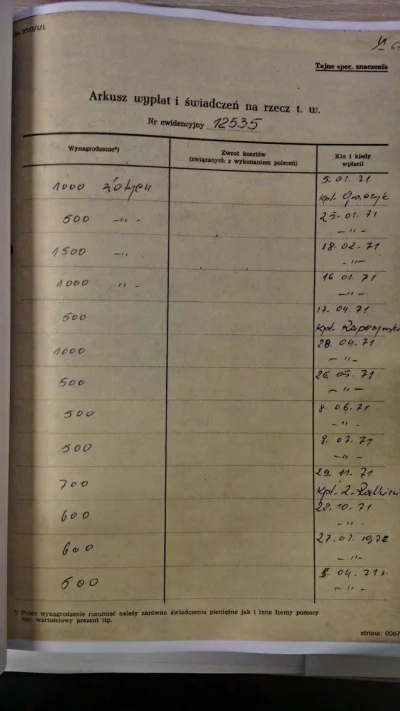 Tajne spec. znaczenia
Arkusz wypłat i świadczeń na rzecz t. w.
Nr ewidencyjny 12535
Wynagrodzenie*)
Zwrot kosztów
(związanych z wykonaniem poleceń)
Kto i kiedy
wpłacił
1000 złotych 5. 01. 71
kpt.
500 -"- 25-01. 71
-"-
1500 -"- 18. 02. 71
-"-
1000 -"- 71
-"-
500 04. 71
kpt.
1000 28. 04. 71
-"-
500 26. 05. 71
-"-
500 8. 06. 71
-"-
500 71
-"-
700 29. 11. 71
kpt.
600 22. 10. 71
-"-
600 27. 01. 1972
-"-
500 04.
-"-
*) Przez wynagrodzenie rozumieć należy zarówno świadczenia pieniężne jak i inne formy pomocy
np. wartościowy prezent itp.
strona: 0067